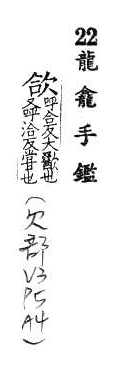 22龍龕手鑑
欱呼合反大歠也
又呼洽反嘗也
(欠部V3P5A4)